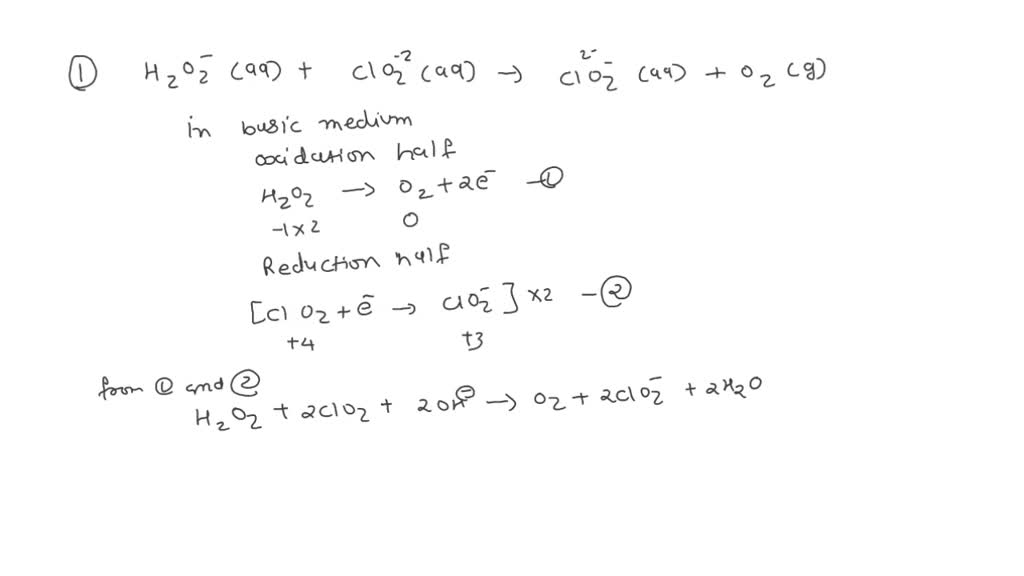 ① H₂O₂⁻ (aq) + ClO₂⁻² (aq) → ClO₂⁻ ²⁻ (aq) + O₂ (g)
in basic medium
oxidation half
H₂O₂ → O₂ + 2e⁻ -①
-1×2 0
Reduction half
[Cl O₂ + e⁻ → ClO₂⁻ ] ×2 -②
+4 +3
from ① and ②
H₂O₂ + 2ClO₂ + 2OH⊖ → O₂ + 2ClO₂⁻ + 2H₂O